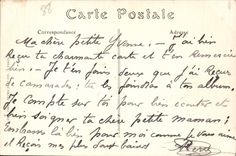 Carte Postale
Correspondance Adresse
Ma chère petite Yvonne. - J'ai bien
Reçu ta charmante carte et t'en Remercie
bien. - Je t'en joins deux que j'ai Reçues
de camarades; tu les joindras à ton album.
Je compte sur toi pour bien écouter et
bien soigner ta chère petite maman;
embrasse là bien pour moi comme je vous aime
et Reçois mes plus doux baisers